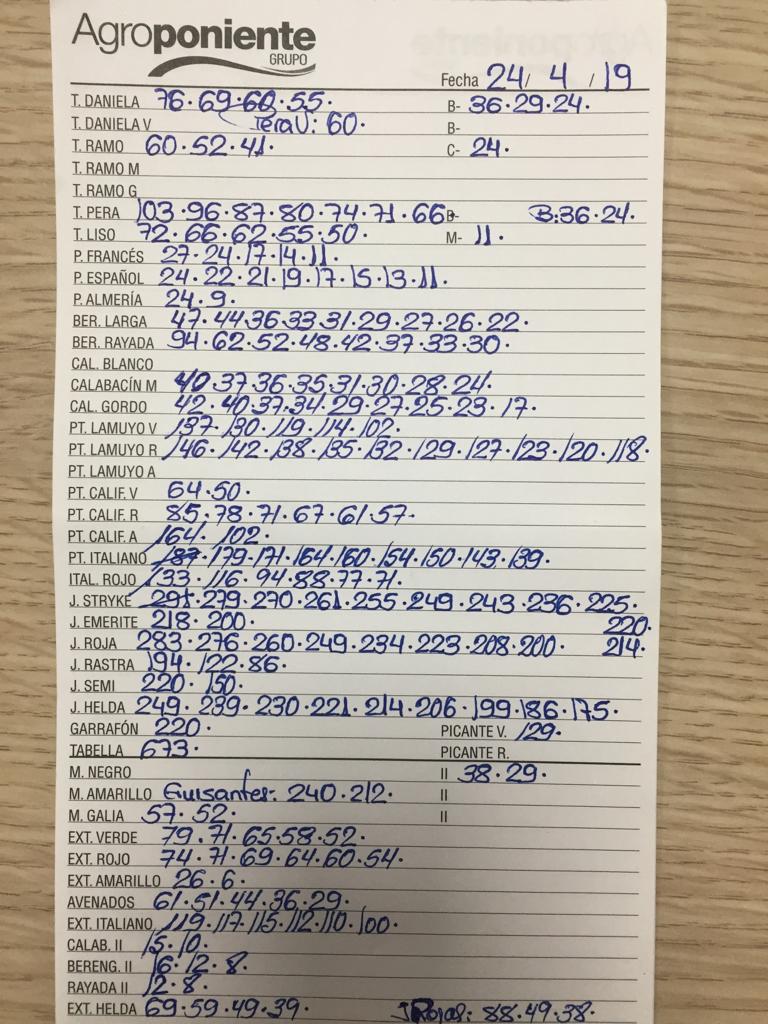 Agroponiente
GRUPO
Fecha 24/ 4 /19
T. DANIELA 76·69·60·55· B- 36·29·24·
T. DANIELA V Pera V: 60· B-
T. RAMO 60·52·41· C- 24·
T. RAMO M
T. RAMO G
T. PERA 103·96·87·80·74·71·66 B- B:36·24·
T. LISO 72·66·62·55·50· M- 11·
P. FRANCÉS 27·24·17·14·11·
P. ESPAÑOL 24·22·21·19·17·15·13·11·
P. ALMERÍA 24·9·
BER. LARGA 47·44·36·33·31·29·27·26·22·
BER. RAYADA 94·62·52·48·42·37·33·30·
CAL. BLANCO
CALABACÍN M 40·37·36·35·31·30·28·24·
CAL. GORDO 42·40·37·34·29·27·25·23·17·
PT. LAMUYO V 137·130·119·114·102·
PT. LAMUYO R 146·142·138·135·132·129·127·123·120·118·
PT. LAMUYO A
PT. CALIF. V 64·50·
PT. CALIF. R 85·78·71·67·61·57·
PT. CALIF. A 164·102·
PT. ITALIANO 187·179·171·164·160·154·150·143·139·
ITAL. ROJO 133·116·94·88·77·71·
J. STRYKE 291·279·270·261·255·249·243·236·225·
J. EMERITE 218·200· 220·
J. ROJA 283·276·260·249·234·223·208·200· 214·
J. RASTRA 194·122·86·
J. SEMI 220·150·
J. HELDA 249·239·230·221·214·206·199·186·175·
GARRAFÓN 220· PICANTE V. 129·
TABELLA 673· PICANTE R.
M. NEGRO II 38·29·
M. AMARILLO Guisantes: 240·212· II
M. GALIA 57·52· II
EXT. VERDE 79·71·65·58·52·
EXT. ROJO 74·71·69·64·60·54·
EXT. AMARILLO 26·6·
AVENADOS 61·51·44·36·29·
EXT. ITALIANO 119·117·115·112·110·100·
CALAB. II 15·10·
BERENG. II 16·12·8·
RAYADA II 12·8·
EXT. HELDA 69·59·49·39· J Rojas: 88·49·38·